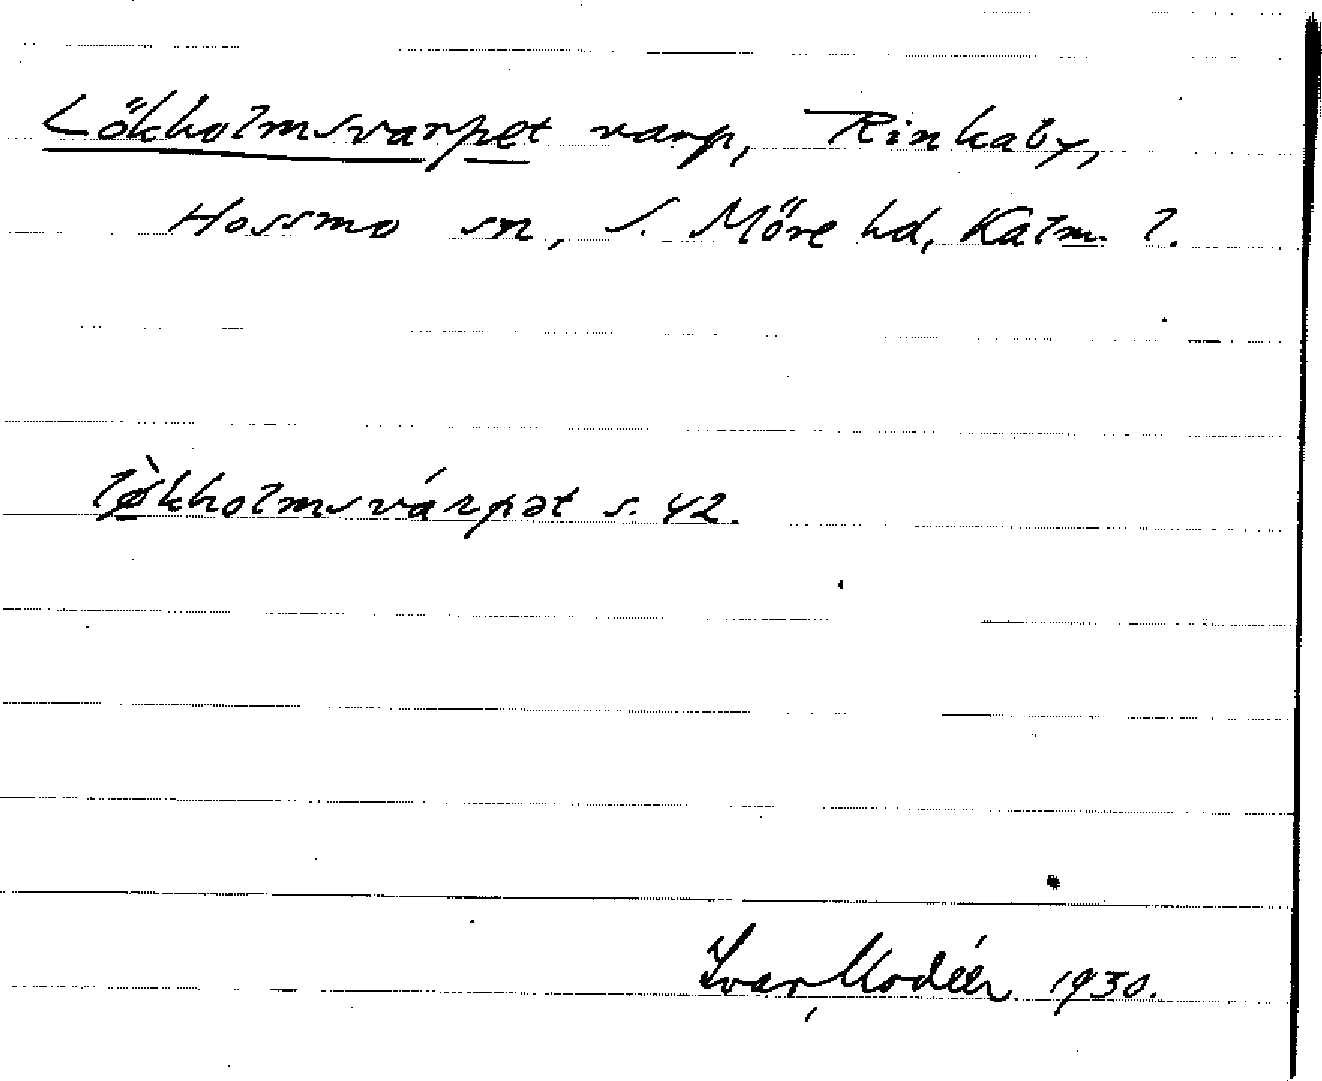 Lökholmsvarpet varp, Rinkaby,
Hossmo sn, S. Möre hd, Kalm. l.
lø̀kholmsvárpət s. 42.
Ivar Modéer 1930.